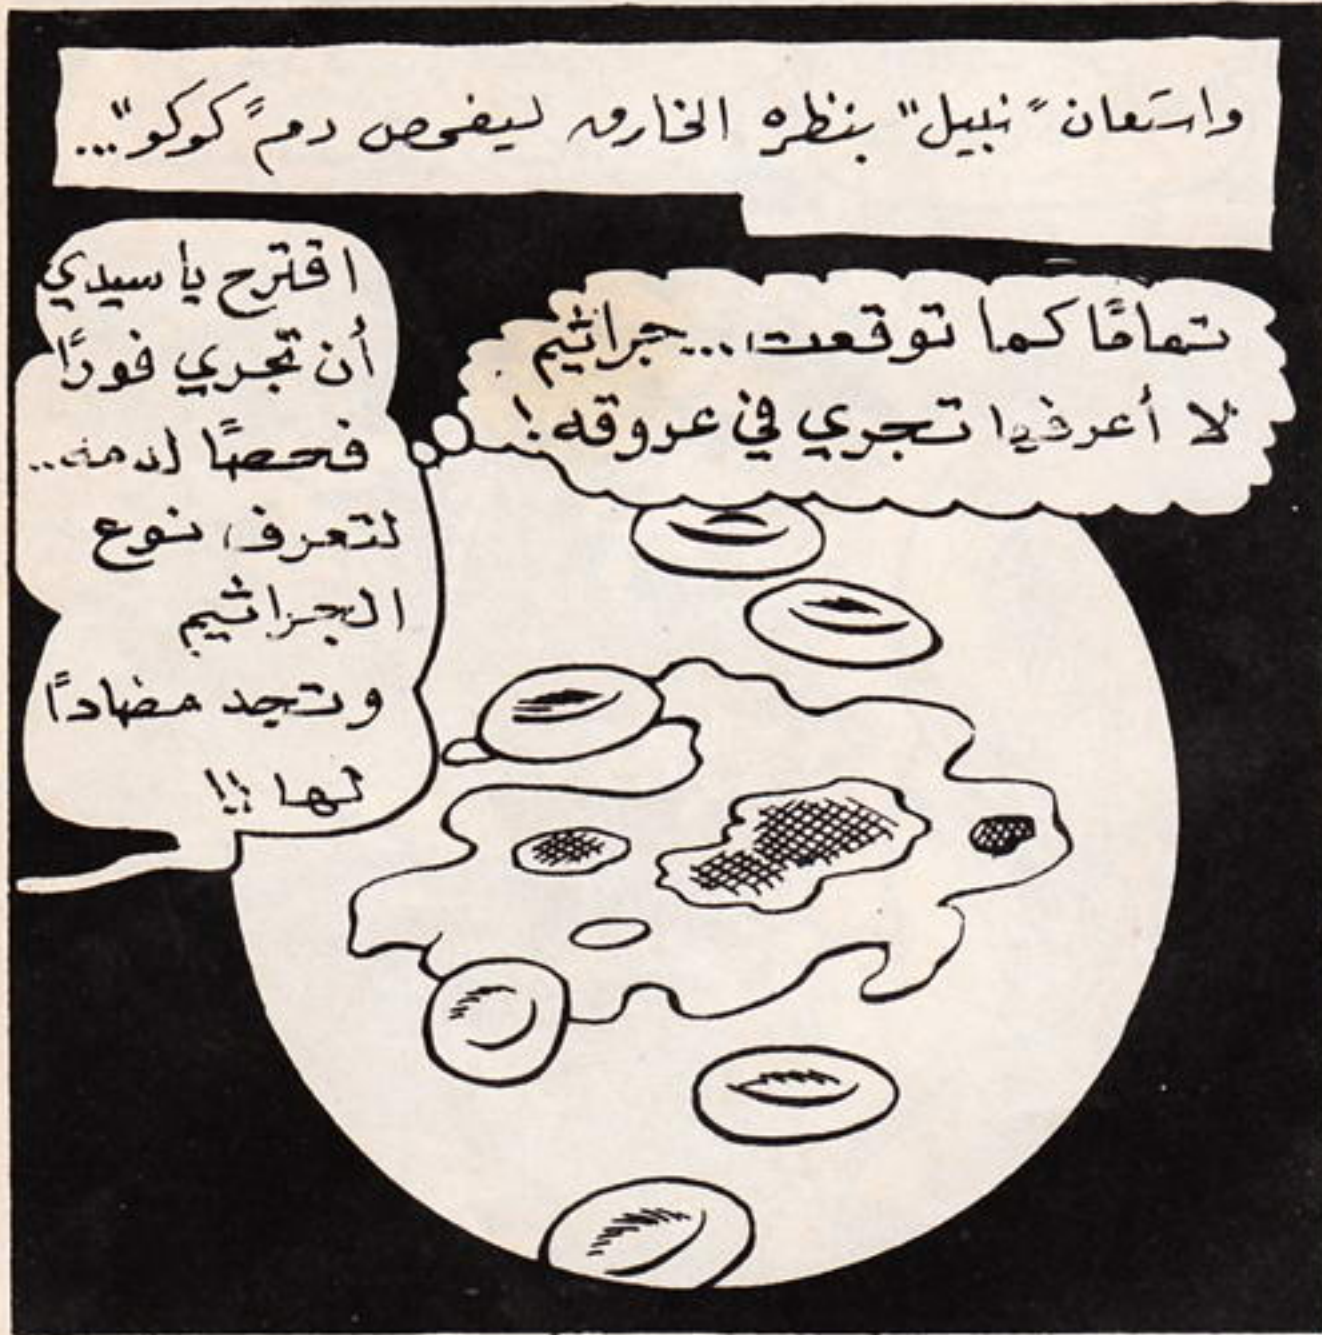 واستعان "نبيل" بنظره الخارق ليفحص دم "كوكو"...
تمامًا كما توقعت...جراثيم
لا أعرفها تجري في عروقه!
اقترح يا سيدي
أن تجري فورًا
فحصًا لدمه..
لتعرف نوع
الجراثيم
وتجد مضادًا
لها !!